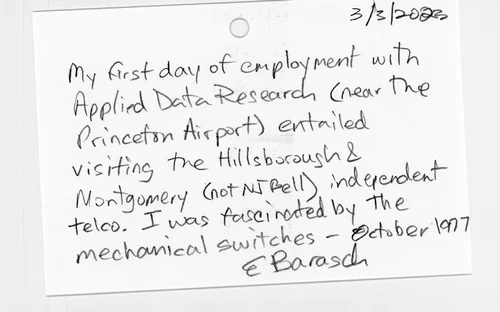 3/3/2023
My first day of employment with
Applied Data Research (near the
Princeton Airport) entailed
visiting the Hillsborough &
Montgomery (not NJ Bell) independent
telco. I was fascinated by the
mechanical switches - October 1977
E Barasch